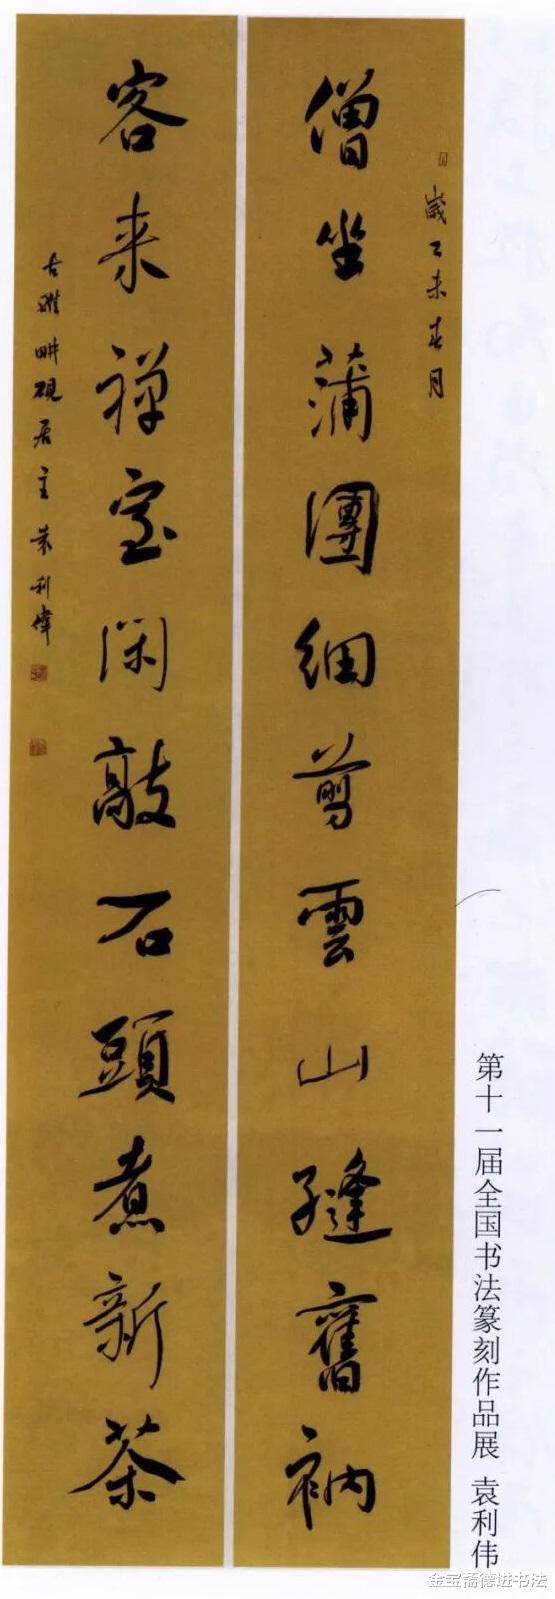 歲乙未春月
僧坐蒲團細剪雲山縫舊衲
客来禅室閑敲石頭煮新茶
古雒畊硯居主袁利偉
第十一届全国书法篆刻作品展 袁利伟
金宝斋德进书法